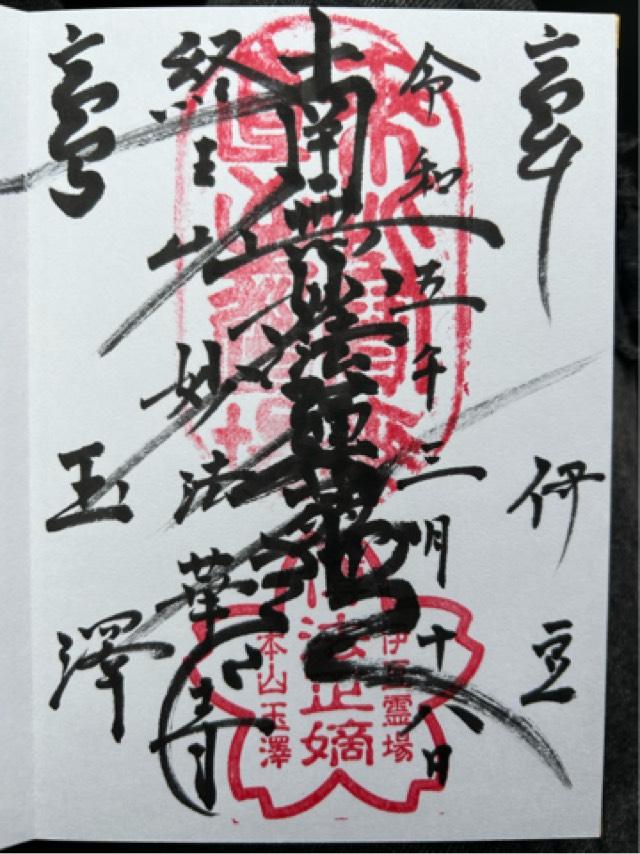 伊豆
令和五年三月十八日
南無妙法蓮華経
経王山妙法華寺
玉澤
伊豆霊場
法正嫡
本山玉澤